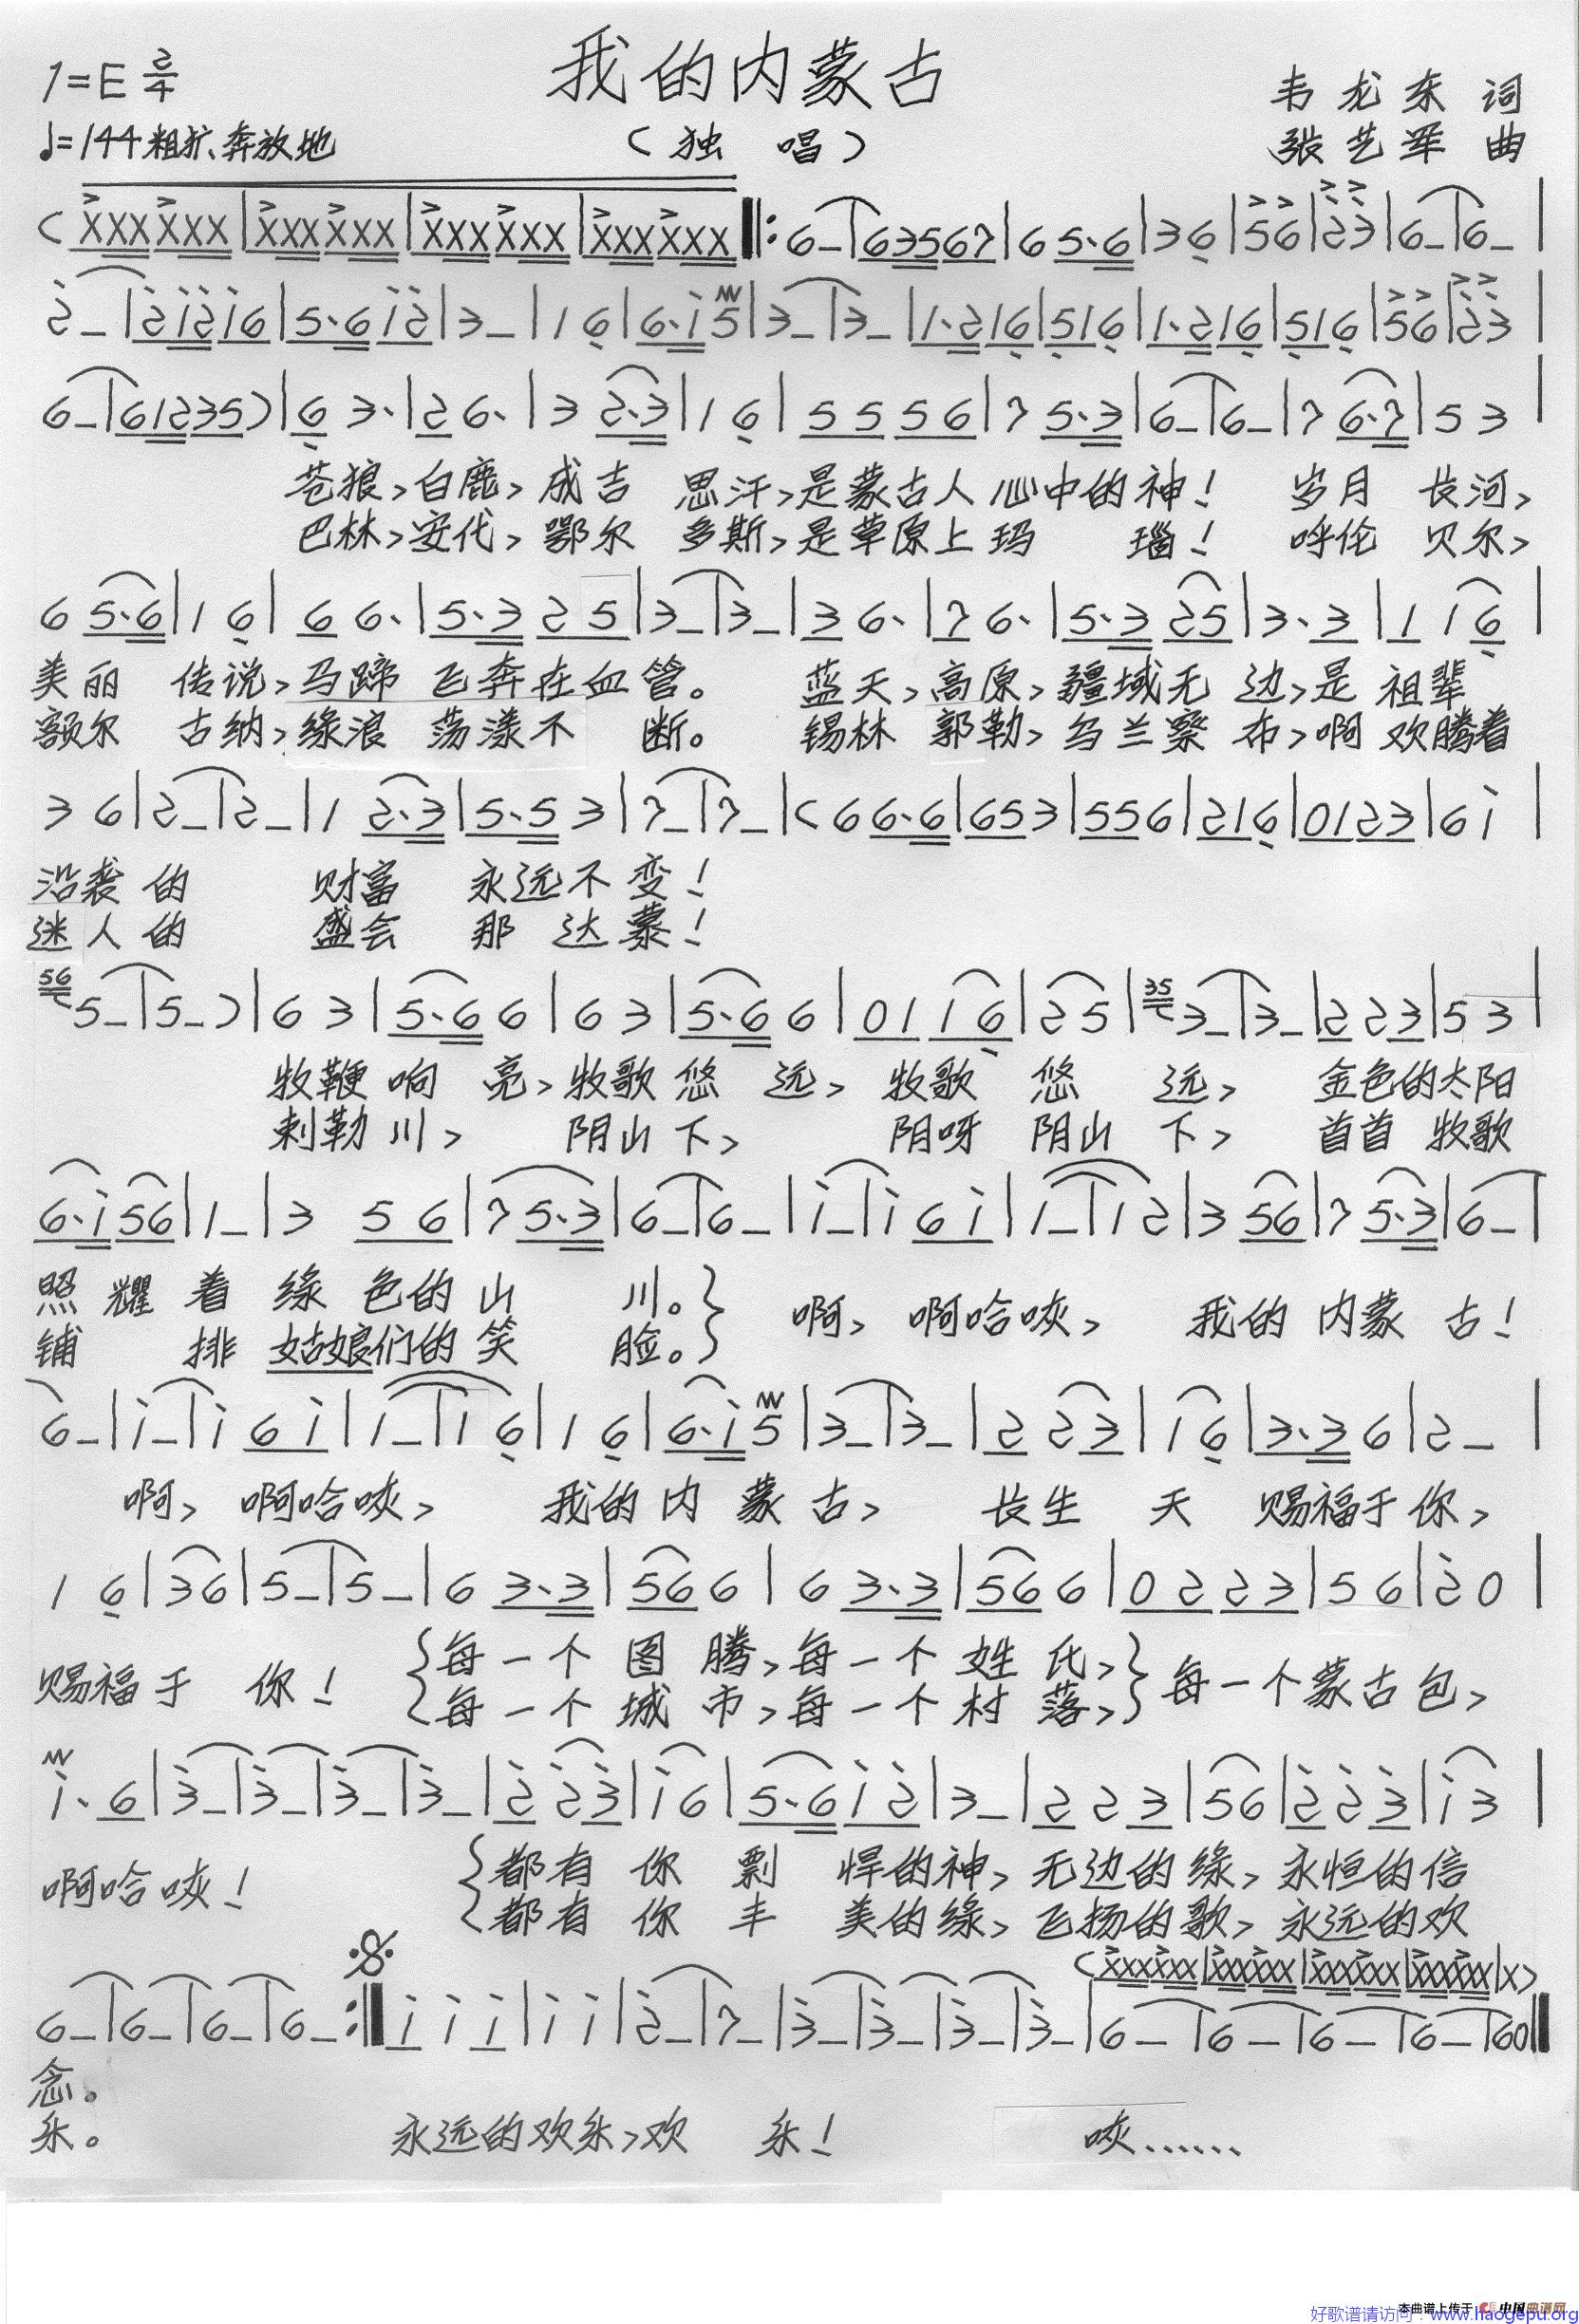 我的内蒙古
1=E 2/4
韦龙东 词
♩=144 粗犷、奔放地
（独 唱）
张艺军 曲
( XXXXXX | XXXXXX | XXXXXX | XXXXXX ‖: 6 – | 63567 | 6 5·6 | 3 6 | 5 6 | 2 3 | 6 – | 6 – |
2 – | 21216 | 5·612 | 3 – | 1 6 | 6·1 5 | 3 – | 3 – | 1·216 | 516 | 1·216 | 516 | 56 | 23 |
6 – | 61235 ) | 6 3· | 2 6· | 3 2·3 | 1 6 | 5 5 5 6 | 7 5·3 | 6 – | 6 – | 7 6·7 | 5 3 |
苍狼,白鹿,成吉 思汗,是蒙古人心中的神! 岁月 长河,
巴林,安代,鄂尔 多斯,是草原上玛 瑙! 呼伦 贝尔,
6 5·6 | 1 6 | 6 6· | 5·3 2 5 | 3 – | 3 – | 3 6· | 7 6· | 5·3 25 | 3· 3 | 1 1 6 |
美丽 传说,马蹄 飞奔在血管。 蓝天,高原,疆域无 边,是 祖辈
额尔 古纳,缘浪 荡漾不 断。 锡林 郭勒,乌兰察 布,啊 欢腾着
3 6 | 2 – | 2 – | 1 2·3 | 5·5 3 | 7 – | 7 – | ( 6 6·6 | 653 | 556 | 216 | 0123 | 6 1 |
沿袭的 财富 永远不变!
迷人的 盛会 那达慕!
56 5 – | 5 – ) | 6 3 | 5·6 6 | 6 3 | 5·6 6 | 01 1 6 | 2 5 | 35 3 – | 3 – | 2 2 3 | 5 3 |
牧鞭响 亮,牧歌悠 远, 牧歌 悠 远, 金色的太阳
刺勒川, 阴山下, 阴呀 阴山 下, 首首 牧歌
6·1 56 | 1 – | 3 5 6 | 7 5·3 | 6 – | 6 – | 1 – | 1 6 1 | 1 – | 1 2 | 3 56 | 7 5·3 | 6 – |
照耀着缘色的山 川。} 啊, 啊哈咴, 我的内蒙古!
铺 排姑娘们的笑 脸。}
6 – | 1 – | 1 6 1 | 1 – | 1 6 | 1 6 | 6·1 5 | 3 – | 3 – | 2 2 3 | 1 6 | 3·3 6 | 2 – |
啊, 啊哈咴, 我的内蒙古, 长生 天 赐福于你,
1 6 | 3 6 | 5 – | 5 – | 6 3·3 | 56 6 | 6 3·3 | 56 6 | 0 2 2 3 | 5 6 | 2 0 |
赐福于 你! {每一个 图 腾,每一个 姓 氏,} 每一个蒙古包,
{每一个 城 市,每一个 村 落,}
1· 6 | 3 – | 3 – | 3 – | 3 – | 2 2 3 | 1 6 | 5·6 1 2 | 3 – | 2 2 3 | 5 6 | 2 2 3 | 1 3 |
啊哈咴! {都有 你 剽 悍的神,无边的缘,永恒的信
{都有 你 丰 美的缘,飞扬的歌,永远的欢
( XXXXXX | XXXXXX | XXXXXX | XXXXXX | X )
6 – | 6 – | 6 – | 6 – :‖ 1 1 1 | 1 1 | 2 – | 7 – | 3 – | 3 – | 3 – | 3 – | 6 – | 6 – | 6 – | 6 – | 60 ‖
念。
乐。 永远的欢乐,欢 乐! 咴……
本曲谱上传于 中国曲谱网
好歌谱请访问：www.haogepu.org